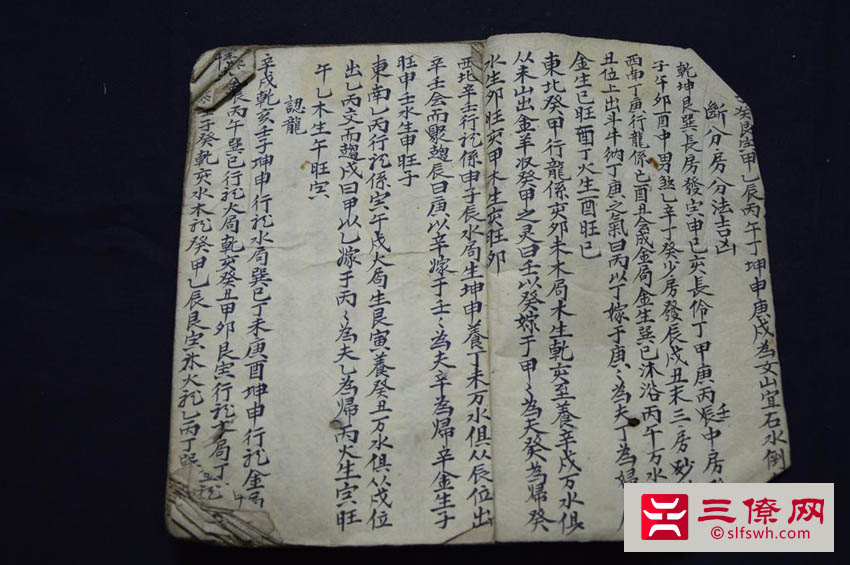 癸艮寅甲乙辰丙午丁坤申庚戌為文山宜石水倒
斷分房分法吉凶
乾坤艮巽長房發寅申巳亥長伶丁甲庚丙壬辰中房
子午卯酉中男煞乙辛丁癸少房發辰戌丑未三房
西南丁庚行龍係巳酉丑会成金局金生巽巳沐浴丙午万水
丑位上出斗牛納丁庚之氣曰丙以丁嫁于庚〻為夫丁為婦
金生巳旺酉丁火生酉旺巳
東北癸甲行龍係亥卯未木局木生乾亥至養辛戌万水俱
从未山出金羊収癸甲之灵曰壬以癸嫁于甲〻為夫癸為歸癸
水生卯旺亥甲木生亥旺卯
西北辛壬行龍係申子辰水局生坤申養丁未万水俱从辰位出
辛壬会而聚趨辰曰庚以辛嫁于壬〻為夫辛為歸辛金生子
旺申壬水生申旺子
東南乙丙行龍係寅午戌火局生艮寅養癸丑万水俱从戌位
出乙丙交而趨戌曰甲以乙嫁于丙〻為夫乙為歸丙火生寅旺
午乙木生午旺寅
認龍
辛戌乾亥壬子坤申行龍水局巽巳丁未庚酉坤申行龍金局
辰丙午巽巳行龍火局乾亥癸丑甲卯艮寅行龍木局丁
壬子癸乾亥水木龍癸甲乙辰艮寅木火龍乙丙丁巽
三僚网
slfswh.com